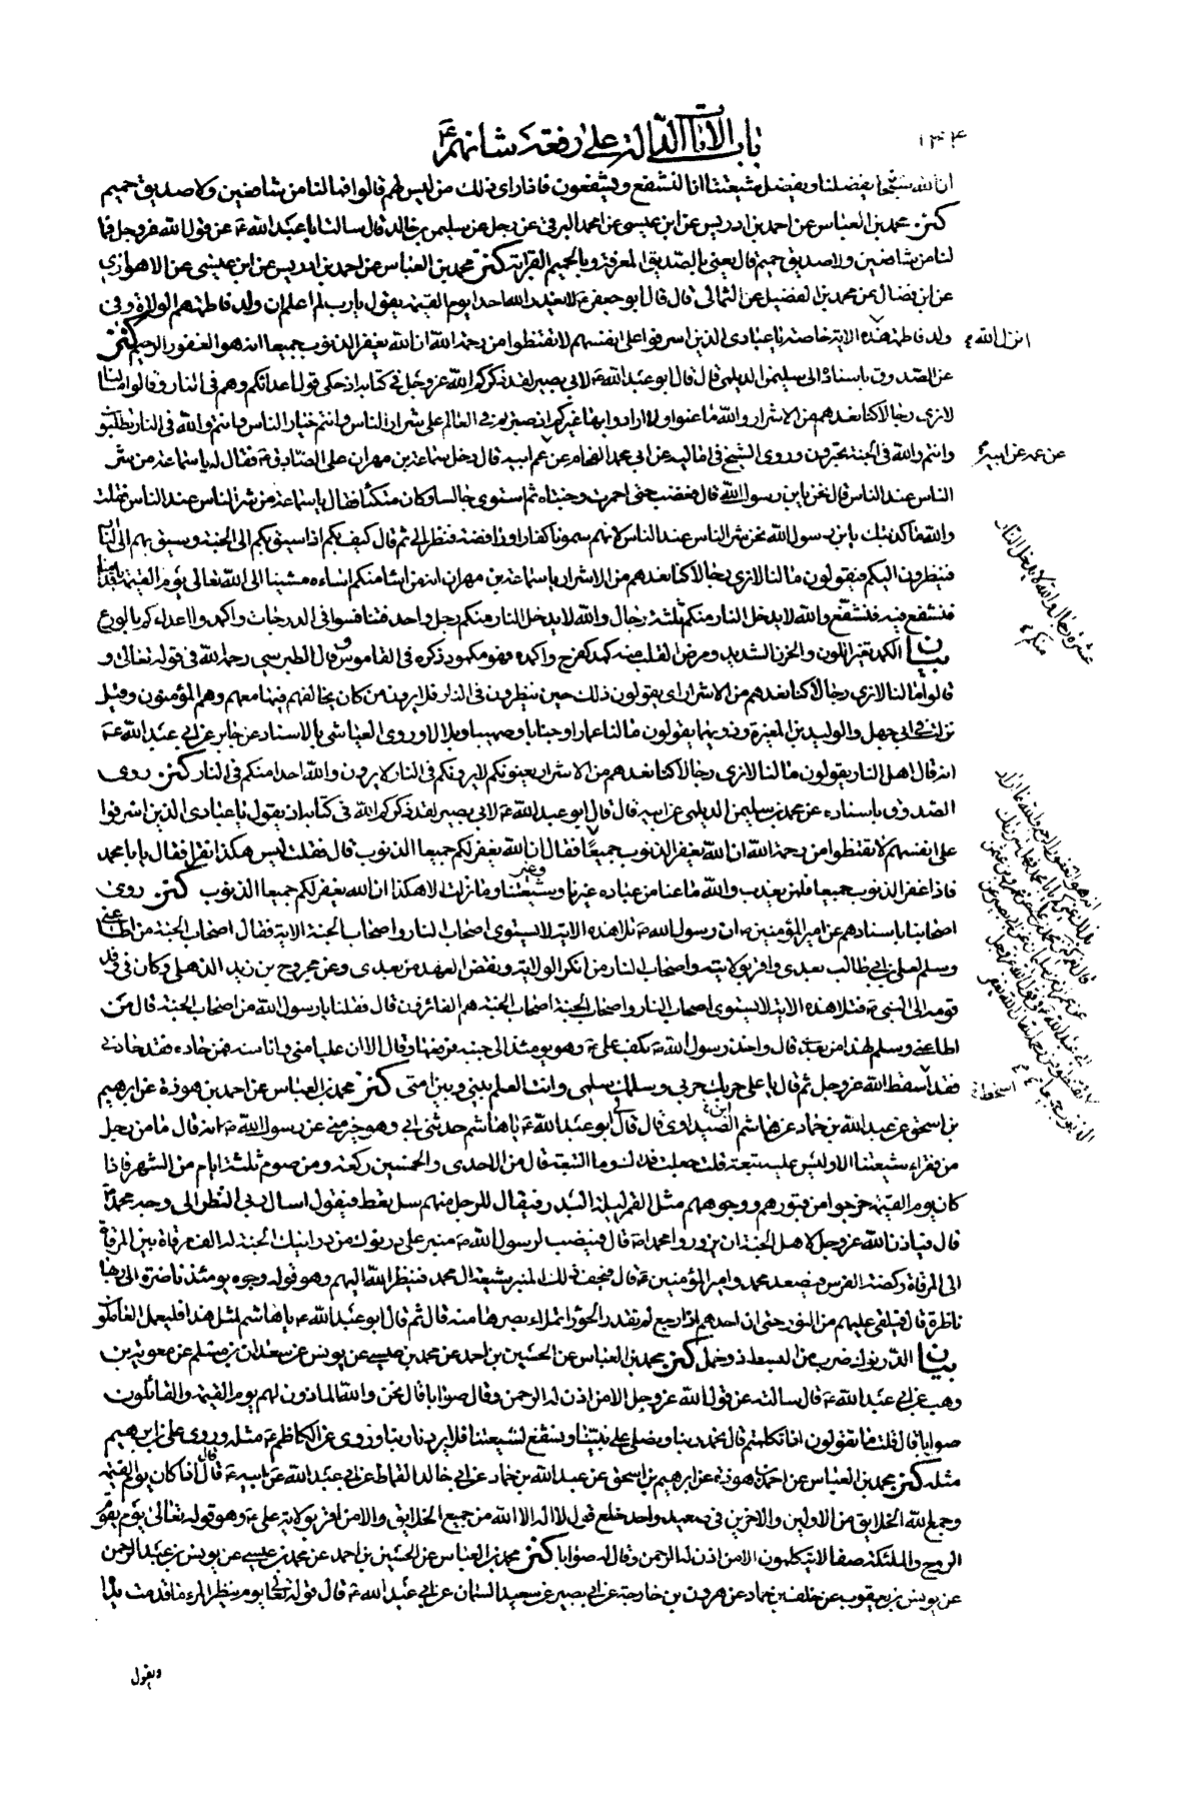 ١٣٤
باب الآيات الدالة على رفعة شأنهم ع
ان الله سبحانه يفضلنا ويفضل شيعتنا انا لنشفع ويشفعون فاذا راى ذلك من ليس لهم قالوا فما لنا من شافعين ولا صديق حميم
كنز محمد بن العباس عن احمد بن ادريس عن ابن عيسى عن محمد البرقي عن رجل عن سليمن بن خالد قال سالت ابا عبد الله ع عن قول الله عزوجل فما
لنا من شافعين ولا صديق حميم قال يعني بالصديق المعرفة وبالحميم القرابة كنز محمد بن العباس عن احمد بن ادريس عن ابن عيسى عن الاهوازي
عن ابن فضال عن محمد بن الفضيل عن الثمالي قال قال ابو جعفر ع لا يعذر الله احدا يوم القيمة يقول يا رب لم اعلم ان ولد فاطمة هم الولاة وفي
ولد فاطمة هذه الاية خاصة يا عبادي الذين اسرفوا على انفسهم لا تقنطوا من رحمة الله ان الله يغفر الذنوب جميعا انه هو الغفور الرحيم كنز
انزل الله ع
عن الصدوق باسناده الى سليمن الديلمي قال قال ابو عبد الله ع لابي بصير لقد ذكركم الله عزوجل في كتابه اذ حكى قول اعدائكم وهم في النار وقالوا ما لنا
لا نرى رجالا كنا نعدهم من الاشرار والله ما عنوا ولا ارادوا بها غيركم اذ صرتم في العالم على شرار الناس وانتم خيار الناس وانتم والله في النار تطلبون
وانتم والله في الجنة تحبرون وروى الشيخ في اماليه عن ابي محمد الفحام عن عم ابيه قال دخل سماعة بن مهران على الصادق ع فقال له يا سماعة من شر
عن عمه عن ابيه
الناس عند الناس قال نحن يابن رسول الله قال فغضب حتى احمرت وجنتاه ثم استوى جالسا وكان متكئا فقال يا سماعة من شر الناس عند الناس فقلت
والله ما كذبتك يابن رسول الله نحن شر الناس عند الناس لانهم سمونا كفارا ورافضة فنظر الي ثم قال كيف بكم اذا سيق بكم الى الجنة وسيق بهم الى النار
فينظرون اليكم فيقولون ما لنا لا نرى رجالا كنا نعدهم من الاشرار يا سماعة بن مهران انه من اساء منكم اساءه مشينا الى الله تعالى يوم القيمة باقدامنا
فنشفع فيه فنشفع والله لا يدخل النار منكم ثلثة رجال والله لا يدخل النار منكم رجل واحد فتنافسوا في الدرجات واكمدوا اعداءكم بالورع
عشرة رجال والله لا يدخل النار منكم ع
بيان الكمد تغير اللون والحزن الشديد ومرض القلب منه كمد كفرح واكمده فهو مكمود ذكره في القاموس وقال الطبرسي رحمه الله في قوله تعالى و
قالوا ما لنا لا نرى رجالا كنا نعدهم من الاشرار اي يقولون ذلك حين ينظرون في النار فلا يرون من كان يخالفهم فيها معهم وهم المؤمنون وقيل
نزلت في ابي جهل والوليد بن المغيرة وذويهما يقولون ما لنا عمارا وخبابا وصهيبا وبلالا وروى العياشي بالاسناد عن جابر عن ابي عبد الله ع
انه قال اهل النار يقولون ما لنا لا نرى رجالا كنا نعدهم من الاشرار يعنونكم لا يرونكم في النار لا يرون والله احدا منكم في النار كنز روى
الصدوق باسناده عن محمد بن سليمن الديلمي عن ابيه قال قال ابو عبد الله ع لابي بصير لقد ذكركم الله في كتابه اذ يقول يا عبادي الذين اسرفوا
على انفسهم لا تقنطوا من رحمة الله ان الله يغفر الذنوب جميعا فقال ان الله يغفر لكم جميعا الذنوب قال فقلت ليس هكذا نقرأ فقال يا با محمد
فاذا غفر الذنوب جميعا فلمن يعذب والله ما عنا من عباده غيرنا وغير شيعتنا وما نزلت الا هكذا ان الله يغفر لكم جميعا الذنوب كنز روى
اصحابنا باسنادهم عن امير المؤمنين ع ان رسول الله ص تلا هذه الاية لا يستوي اصحاب النار واصحاب الجنة الاية فقال اصحاب الجنة من اطاعني
وسلم لعلي بن ابي طالب بعدي واقر بولايته واصحاب النار من انكر الولاية ونقض العهد من بعدي وعن مجروح بن زيد الذهلي وكان في وفد
قومه الى النبي ص فتلا هذه الاية لا يستوي اصحاب النار واصحاب الجنة اصحاب الجنة هم الفائزون قال فقلنا يا رسول الله من اصحاب الجنة قال من
اطاعني وسلم لهذا من بعدي قال واخذ رسول الله ص بكف علي ع وهو يومئذ الى جنبه فرفعها وقال الا ان عليا مني وانا منه فمن حاده فقد حادني
فقد اسقط الله عزوجل ثم قال يا علي حربك حربي وسلمك سلمي وانت العلم بيني وبين امتي كنز محمد بن العباس عن احمد بن هوذة عن ابرهيم
اسخط
بن اسحق عن عبد الله بن حماد عن هاشم الصيداوي قال قال لي ابو عبد الله ع يا هاشم حدثني ابي وهو خير مني عن رسول الله ص انه قال ما من رجل
من فقراء شيعتنا الا وليس عليه تبعة قلت جعلت فداك وما التبعة قال من الاحدى والخمسين ركعة ومن صوم ثلثة ايام من الشهر فاذا
كان يوم القيمة خرجوا من قبورهم ووجوههم مثل القمر ليلة البدر فيقال للرجل منهم سل تعط فيقول اسال ربي النظر الى وجه محمد ص
قال فياذن الله عزوجل لاهل الجنة ان يزوروا محمدا ص قال فينصب لرسول الله ص منبر على درنوك من درانيك الجنة له الف مرقاة بين المرقاة
الى المرقاة ركضة الفرس فيصعد محمد وامير المؤمنين ع قال فيحف ذلك المنبر شيعة ال محمد فينظر الله اليهم وهو قوله وجوه يومئذ ناضرة الى ربها
ناظرة قال فيلقى عليهم من النور حتى ان احدهم اذا رجع لم تقدر الحوراء تملاء بصرها منه قال ثم قال ابو عبد الله ع يا هاشم لمثل هذا فليعمل العاملون
بيان الدرنوك ضرب من البسط ذو خمل كنز محمد بن العباس عن الحسين بن احمد عن محمد بن عيسى عن يونس عن سعدان بن مسلم عن معوية بن
وهب عن ابي عبد الله ع قال سالته عن قول الله عزوجل الا من اذن له الرحمن وقال صوابا قال نحن والله الماذون لهم يوم القيمة والقائلون
صوابا قال قلت ما تقولون اذا تكلمتم قال نحمد ربنا ونصلي على نبينا ونشفع لشيعتنا فلا يردنا ربنا وروي عن الكاظم ع مثله وروى علي بن ابرهيم
مثله كنز محمد بن العباس عن احمد بن هوذة عن ابرهيم بن اسحق عن عبد الله بن حماد عن ابي خالد القماط عن ابي عبد الله عن ابيه ع قال قال اذا كان يوم القيمة
وجمع الله الخلايق من الاولين والاخرين في صعيد واحد خلع قول لا اله الا الله من جميع الخلايق الا من اقر بولاية علي ع وهو قوله تعالى يوم يقوم
الروح والملئكة صفا لا يتكلمون الا من اذن له الرحمن وقال صوابا كنز محمد بن العباس عن الحسين بن احمد عن محمد بن عيسى عن يونس بن عبد الرحمن
عن يونس بن يعقوب عن خلف بن حماد عن هرون بن خارجة عن ابي بصير عن سعيد السمان عن ابي عبد الله ع قال قوله تعالى يوم ينظر المرء ما قدمت يداه
ويقول